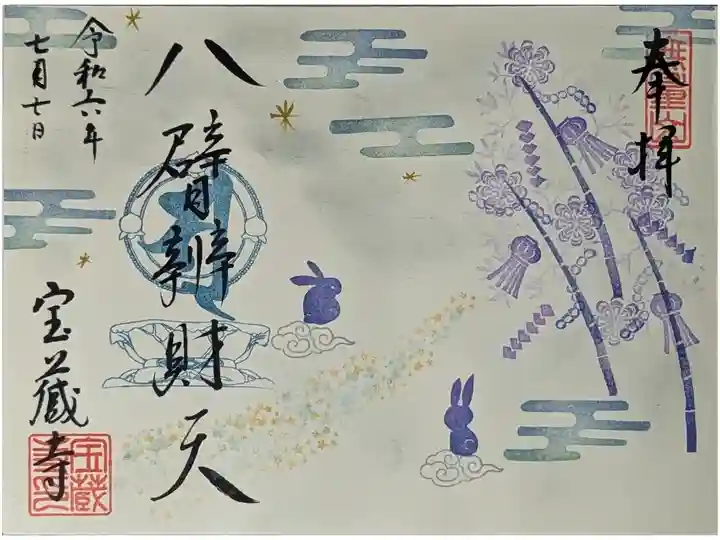 奉拝
八臂辨財天
令和六年
七月七日
宝蔵寺
宝蔵